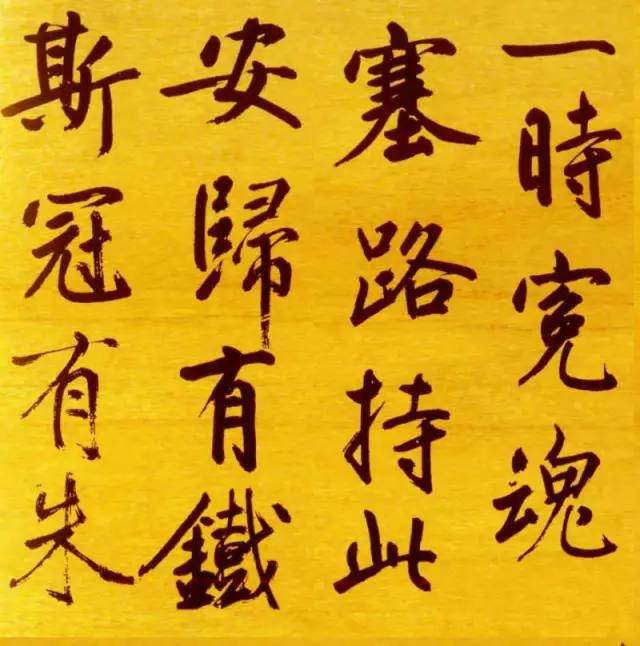 一時寃魂
塞路持此
安歸有鐵
斯冠有朱